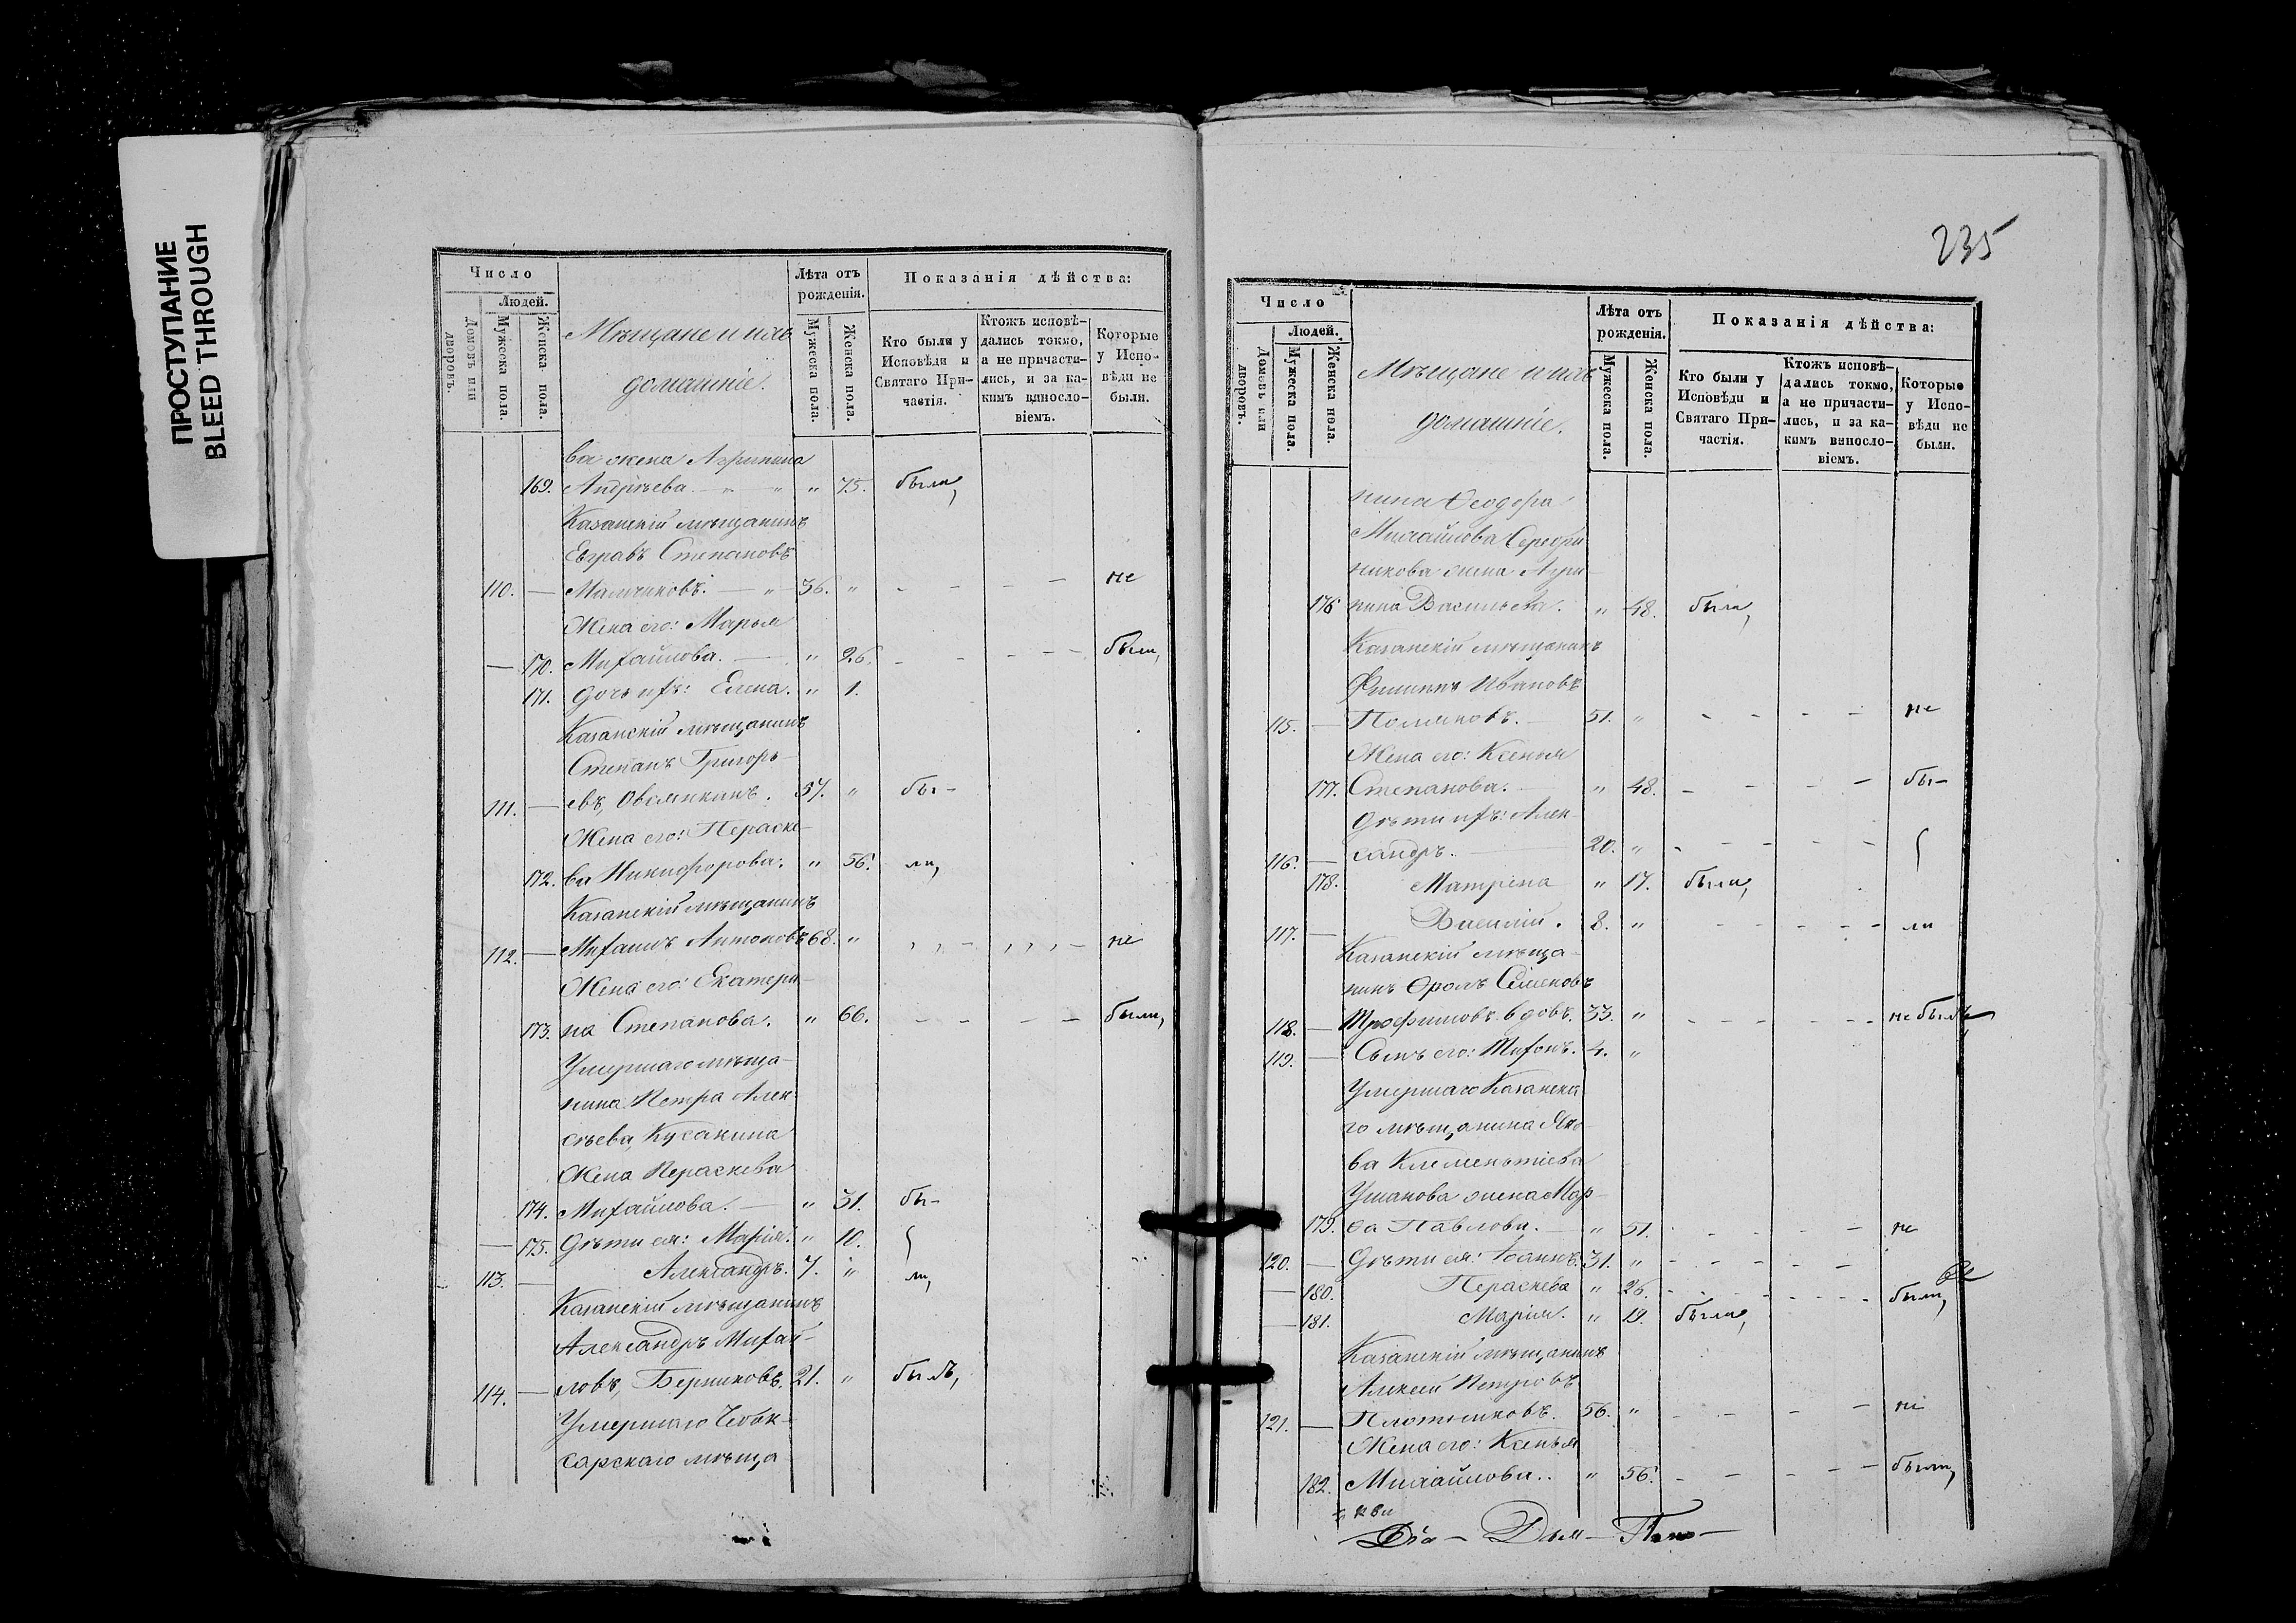 ПРОСТУПАНИЕ
BLEED THROUGH
Число
Людей.
Домовъ или дворовъ.
Мужеска пола.
Женска пола.
Мѣщане и ихъ
домашніе.
Лѣта отъ
рожденія.
Мужеска пола.
Женска пола.
Показанія дѣйства:
Кто были у
Исповѣди и
Святаго При-
частія.
Ктожъ исповѣ-
дались токмо,
а не причасти-
лись, и за ка-
кимъ виносло-
віемъ.
Которые
у Испо-
вѣди не
были.
ва жена Агрипина
169. Андрѣева. — " — " " 75. была,
Казанскій мѣщанинъ
Евграфъ Степановъ
110. — Мальчиковъ. — " — 36. " - - - - не
Жена его: Марья
— 170. Михайлова. — " 26. - - - - были,
171. дочь ихъ: Елена. " 1.
Казанскій мѣщанинъ
Степанъ Григорь-
111. — евъ, Овсянкинъ. 57. " бы-
Жена его: Параске-
172. ва Никифорова. " 56. ли,
Казанскій мѣщанинъ
112. — Михаилъ Антоновъ 68. " не
Жена его: Екатери-
173. на Степанова. " 66. - - - - были,
Умершаго мѣща-
нина Петра Алек-
сѣева, Кусакина
жена Параскева
174. Михайлова. — " 31. бы-
— 175. Дѣти ея: Марія. " 10.
113. — Александръ. 7. " ли,
Казанскій мѣщанинъ
Александръ Михай-
114. — ловъ, 21. " былъ,
Умершаго Чебок-
сарскаго мѣща
235
Число
Людей.
Домовъ или дворовъ.
Мужеска пола.
Женска пола.
Мѣщане и ихъ
домашніе.
Лѣта отъ
рожденія.
Мужеска пола.
Женска пола.
Показанія дѣйства:
Кто были у
Исповѣди и
Святаго При-
частія.
Ктожъ исповѣ-
дались токмо,
а не причасти-
лись, и за ка-
кимъ виносло-
віемъ.
Которые
у Испо-
вѣди не
были.
нина Ѳеодора
Михайлова Серебри
никова жена Агри-
176 пина Васильева. " 48. была,
Казанскій мѣщанинъ
Филиппъ Ивановъ
115. — Поляковъ. — 51. " - - - - не
Жена его: Ксенья
177. Степанова. — " 48. - - - - бы-
Дѣти ихъ: Алек-
116. — сандръ. — 20. " - - - - -
178. Матрена " 17. была,
117. — Василій. 8. " - - - - - ли
Казанскій мѣща-
нинъ Фролъ Семеновъ
118. — Трофимовъ вдовъ. 33. " - - - - - не былъ
119. — Сынъ его: Тихонъ. 4. "
Умершаго Казанска
го мѣщанина Яко-
ва Клементіева
Ушакова жена Мар-
179. ѳа Павлова. — " 51. - - - - не
120. — Дѣти ея: Іоаннъ. 31. " - - - - -
— 180. Параскева " 26. - - - - - были,
— 181. Марія. " 19. была,
Казанскій мѣщанинъ
Алексей Петровъ
121. — Плотниковъ. 56. " - - - - не
Жена его: Ксенья
182. Михайлова.. " 56. - - - - - были,